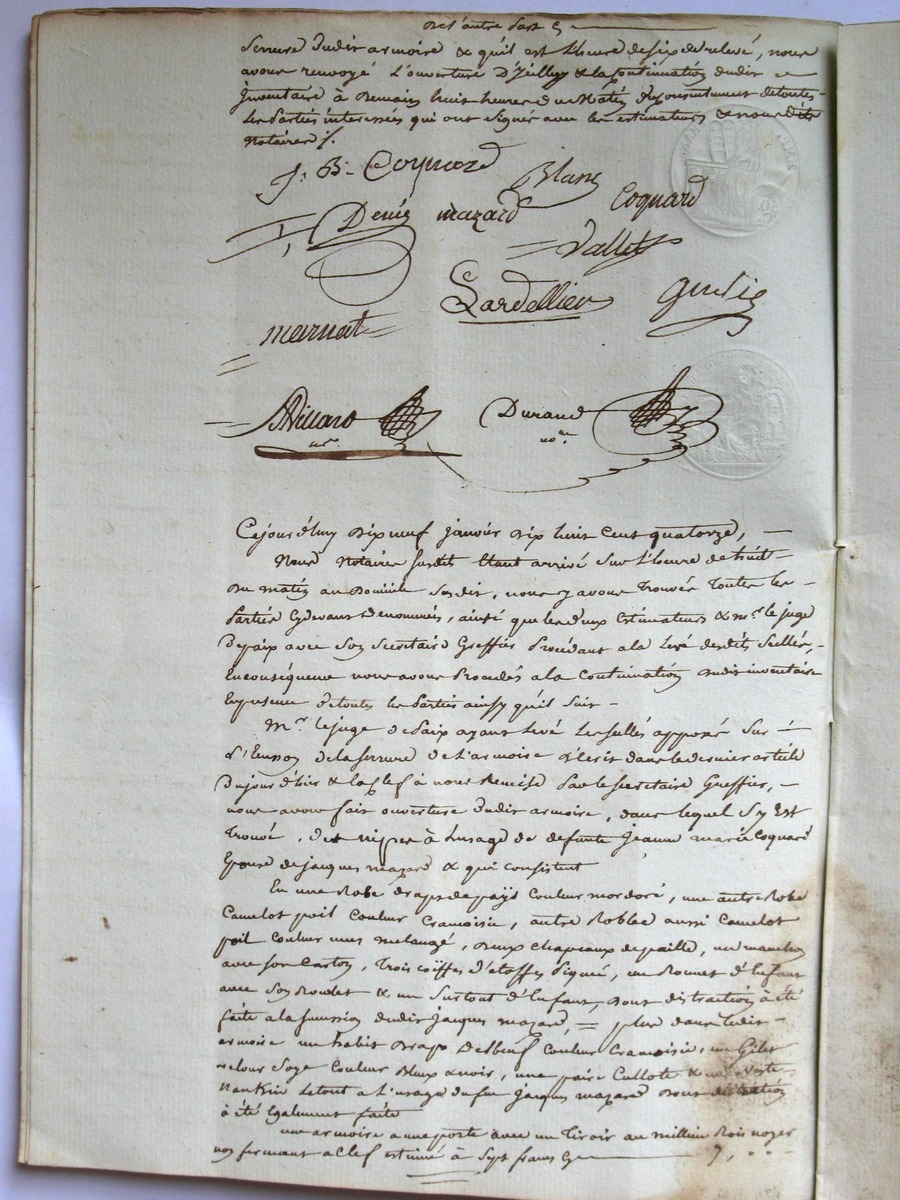 De l'autre part
serrure dudit armoire & qu'il est l'heure de six de relevé, nous
avons renvoyé l'ouverture d'jcelluy & la continuation dudit
jnventaire à Demain huit heures du Matin Du Consentement de toutes
les Parties intéressées qui ont signé avec les estimateurs & nousdits
notaires ./.
J. B. Coquard
Blanc
Coquard
Denis mazard
Vallet
Lardellier
marnat
Villard
nre.
Durand
nore.
Cejourd'huy Dix neuf janvier Dix huit cent quatorze,
Nous Notaires susdits Etant arrivé sur l'heure de huit
du matin au Domicile susdit, nous y avons Trouvés Toutes les
Parties Cydevant Denommées, ainsi que les deux Estimateurs & mr. le juge
De paix avec son Secretaire Greffier Procedant a la levé desdits Scellés,
En conséquence nous avons Procédés a la Continuation dudit inventaire
En presence de toutes les Parties ainsy qu'il suit
Mr. le juge de Paix ayant levé les scellés apposés sur
de la serrure de l'armoire décrit dans le dernier article
Du jour d'hier & la Clef à nous Remise Par le Secretaire Greffier,
nous avons fait ouverture dudit armoire, dans lequel s'y Est
Trouvé, des nipes à l'usage de defunte jeanne marie Coquard
Epouse de jacques mazard & qui consistent
En une Robe draps de païs Couleur mordoré, une autre Robe
Camelot poil Couleur Cramoisie, autre Robbe aussi Camelot
poil Couleur melangé, Deux Chapeaux de paille, un manchon
avec son Carton, Trois coiffes d'etoffes Piqué, un Bonnet d'Enfant
avec son & un Surtout d'Enfant, dont distraction à été
faite a la succession dudit jacques mazard, = plus dans ledit
armoire un habit Drap Delbeuf Couleur Cramoisie, un Gilet
velour Soye Couleur Bleux & noir, une paire Cullote & une veste
Nankin le tout a l'usage du feu jacques mazard Dont distraction
à été également faite
une armoire a une porte avec un Tiroir au millieu Bois noyer
fermant a Clef estimé à Sept francs